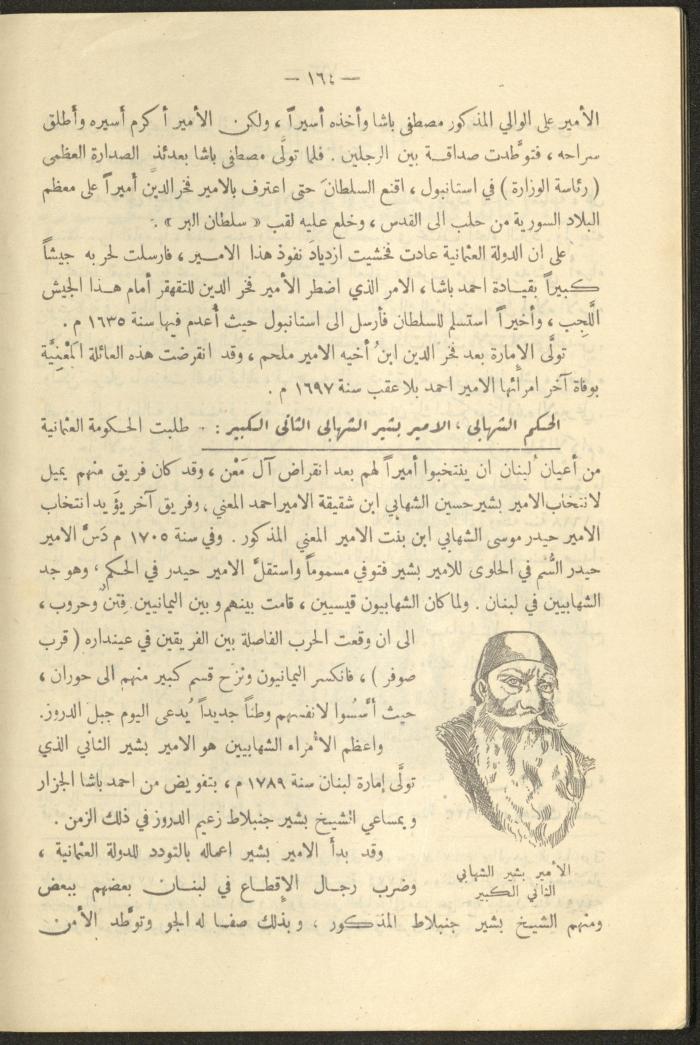 — ١٦٤ —
الأمير على الوالي المذكور مصطفى باشا وأخذه أسيراً ، ولكن الأمير أكرم أسيره وأطلق
سراحه ، فتوطَّدت صداقة بين الرجلين . فلما تولَّى مصطفى باشا بعدئذٍ الصدارة العظمى
( رئاسة الوزارة ) في استانبول ، اقنع السلطانَ حتى اعترف بالامير فخرالدين أميراً على معظم
البلاد السورية من حلب الى القدس ، وخلع عليه لقب « سلطان البر » .
على ان الدولة العثمانية عادت فخشيت ازديادَ نفوذ هذا الامير ، فارسلت لحربه جيشاً
كبيراً بقيادة احمد باشا ، الامر الذي اضطر الأمير فخر الدين للتقهقر أمام هذا الجيش
اللَّجِب ، وأخيراً استسلم للسلطان فأرسل الى استانبول حيث أُعدم فيها سنة ١٦٣٥ م .
تولَّى الإمارة بعد فخر الدين ابنُ أخيه الامير ملحم ، وقد انقرضت هذه العائلة المَعْنِيَّة
بوفاة آخر امرائها الامير احمد بلا عقب سنة ١٦٩٧ م .
الحكم الشهابي ، الامير بشير الشهابي الثاني الكبير : - طلبت الحكومة العثمانية
من أعيان لُبنان ان ينتخبوا أميراً لهم بعد انقراض آل مَعْن ، وقد كان فريق منهم يميل
لانتخاب الامير بشير حسين الشهابي ابن شقيقة الامير احمد المعني ، وفريق آخر يؤيد انتخاب
الامير حيدر موسى الشهابي ابن بنت الامير المعني المذكور . وفي سنة ١٧٠٥ م دَسَّ الامير
حيدر السُّم في الحلوى للامير بشير فتوفي مسموماً واستقلَّ الامير حيدر في الحكم ، وهو جد
الشهابيين في لبنان . ولما كان الشهابيون قيسيين ، قامت بينهم وبين اليمانيين فِتَنٌ وحروب ،
الى ان وقعت الحرب الفاصلة بين الفريقين في عينداره ( قرب
صوفر ) ، فانكسر اليمانيون ونزح قسم كبير منهم الى حوران ،
حيث أسَّسوا لانفسهم وطناً جديداً يُدعى اليوم جبلَ الدروز.
واعظم الأمراء الشهابيين هو الامير بشير الثاني الذي
تولَّى إمارة لبنان سنة ١٧٨٩ م ، بتفويض من احمد باشا الجزار
وبمساعي الشيخ بشير جنبلاط زعيم الدروز في ذلك الزمن .
وقد بدأ الامير بشير اعماله بالتودد للدولة العثمانية ،
وضرب رجال الإقطاع في لبنان بعضهم ببعض
الأمير بشير الشهابي
الثاني الكبير
ومنهم الشيخ بشير جنبلاط المذكور ، وبذلك صفا له الجو وتوطَّد الأمن